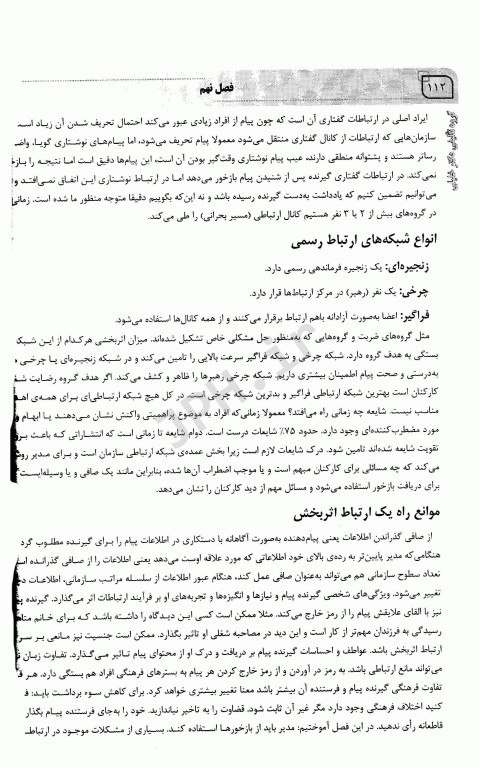 ۱۱۲
فصل نهم
ایراد اصلی در ارتباطات گفتاری آن است که چون پیام از افراد زیادی عبور می‌کند احتمال تحریف شدن آن زیاد است
سازمان‌هایی که ارتباطات از کانال گفتاری منتقل می‌شود معمولا پیام تحریف می‌شود، اما پیام‌های نوشتاری گویا،
رساتر هستند و پشتوانه منطقی دارند، عیب پیام نوشتاری وقت‌گیر بودن آن است، این پیام‌ها دقیق است اما نتیجه را
نمی‌کند. در ارتباطات گفتاری گیرنده پس از شنیدن پیام بازخور می‌دهد اما در ارتباط نوشتاری این اتفاق نمی‌افتد
می‌توانیم تضمین کنیم که یادداشت به‌دست گیرنده رسیده باشد و نه این‌که بگوییم دقیقا متوجه منظور ما شده است. زمانی
در گروه‌های بیش از ۲ یا ۳ نفر هستیم کانال ارتباطی (مسیر بحرانی) را طی می‌کند.
انواع شبکه‌های ارتباط رسمی
زنجیره‌ای: یک زنجیره فرماندهی رسمی دارد.
چرخی: یک نفر (رهبر) در مرکز ارتباط‌ها قرار دارد.
فراگیر: اعضا به‌صورت آزادانه باهم ارتباط برقرار می‌کنند و از همه کانال‌ها استفاده می‌شود.
مثل گروه‌های ضربت و گروه‌هایی که به‌منظور حل مشکلی خاص تشکیل شده‌اند. میزان اثربخشی هرکدام از این شبکه
بستگی به هدف گروه دارد. شبکه چرخی و شبکه فراگیر سرعت بالایی را تامین می‌کند و در شبکه زنجیره‌ای یا چرخی
به‌درستی و صحت پیام اطمینان بیشتری داریم. شبکه چرخی رهبرها را ظاهر و کشف می‌کند. اگر هدف گروه رضایت
کارکنان است بهترین شبکه ارتباطی فراگیر و بدترین شبکه چرخی است. در کل هیچ شبکه ارتباطی‌ای برای همه‌ی
مناسب نیست. شایعه چه زمانی راه می‌افتد؟ معمولا زمانی‌که افراد به موضوع پراهمیتی واکنش نشان می‌دهند یا ابهام
مورد مضطرب‌کننده‌ای وجود دارد. حدود ۷۵٪ شایعات درست است. دوام شایعه تا زمانی است که انتشاراتی که باعث
تقویت شایعه شده‌اند تامین شود. درک شایعات لازم است زیرا بخش عمده‌ی شبکه ارتباطی سازمان است و برای مدیر
می‌کند که چه مسائلی برای کارکنان مبهم است و یا موجب اضطراب آن‌ها شده، بنابراین مانند یک صافی و یا وسیله‌ایست
برای دریافت بازخور استفاده می‌شود و مسائل مهم از دید کارکنان را نشان می‌دهد.
موانع راه یک ارتباط اثربخش
از صافی گذراندن اطلاعات یعنی پیام‌دهنده به‌صورت آگاهانه با دستکاری در اطلاعات پیام را برای گیرنده مطلوب
هنگامی‌که مدیر پایین‌تر به رده‌ی بالای خود اطلاعاتی که مورد علاقه اوست می‌دهد یعنی اطلاعات را از صافی گذرانده
تعداد سطوح سازمانی هم می‌تواند به‌عنوان صافی عمل کند، هنگام عبور اطلاعات از سلسله مراتب سازمانی، اطلاعات
تغییر می‌شود. ویژگی‌های شخصی گیرنده پیام و نیازها و انگیزه‌ها و تجربه‌های او بر فرآیند ارتباطات اثر می‌گذارد. گیرنده
نیز با القای علایقش پیام را از رمز خارج می‌کند. مثلا ممکن است کسی این دیدگاه را داشته باشد که برای خانم
رسیدگی به فرزندان مهم‌تر از کار است و این دید در مصاحبه شغلی او تاثیر بگذارد. ممکن است جنسیت نیز مانعی بر
ارتباط اثربخش باشد. عواطف و احساسات گیرنده پیام بر دریافت و درک او از محتوای پیام تاثیر می‌گذارد. تفاوت زبان
می‌تواند مانع ارتباطی باشد. به رمز در آوردن و از رمز خارج کردن هر پیام به بسترهای فرهنگی افراد هم بستگی دارد. هر
تفاوت فرهنگی گیرنده پیام و فرستنده آن بیشتر باشد معنا تغییر بیشتری خواهد کرد. برای کاهش سوء برداشت باید:
کنید اختلاف فرهنگی وجود دارد مگر غیر آن ثابت شود. قضاوت را به تاخیر نیاندازید. خود را به‌جای فرستنده پیام بگذار
قاطعانه رأی ندهید. در این فصل آموختیم: مدیر باید از بازخورها استفاده کند. بسیاری از مشکلات موجود در